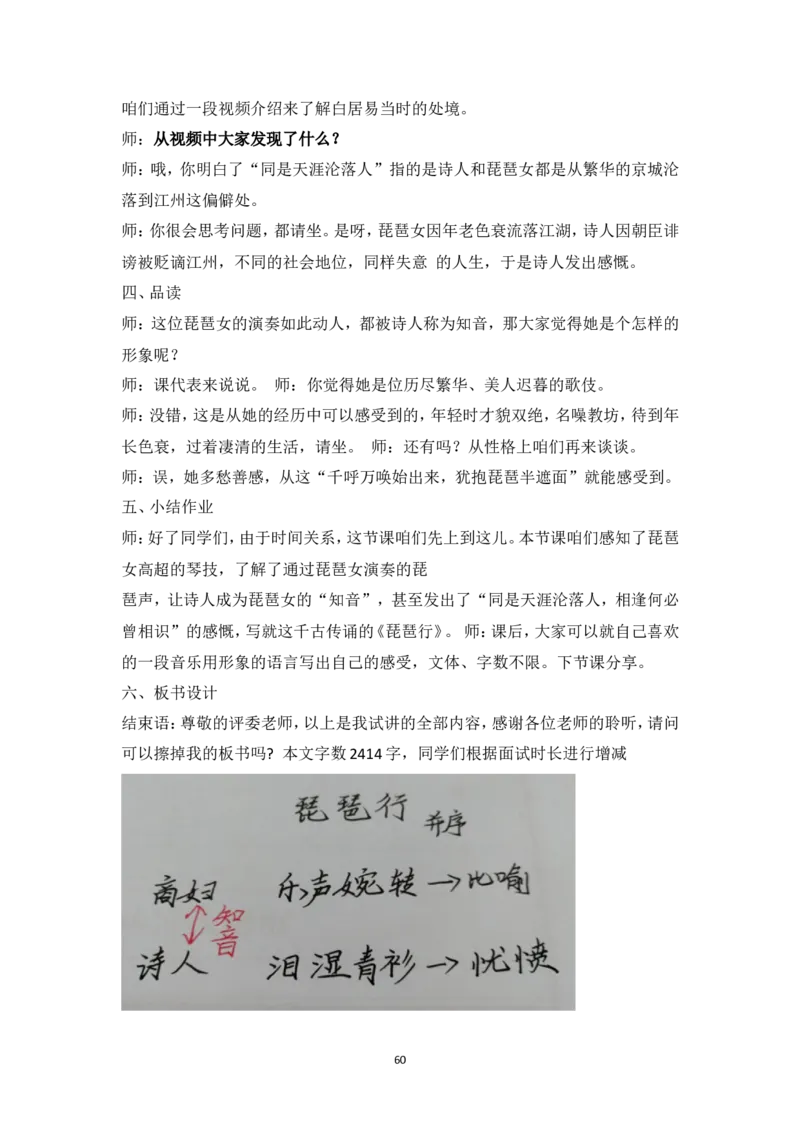 咱们通过一段视频介绍来了解白居易当时的处境。
师：从视频中大家发现了什么？
师：哦，你明白了“同是天涯沦落人”指的是诗人和琵琶女都是从繁华的京城沦
落到江州这偏僻处。
师：你很会思考问题，都请坐。是呀，琵琶女因年老色衰流落江湖，诗人因朝臣诽
谤被贬谪江州，不同的社会地位，同样失意 的人生，于是诗人发出感慨。
四、品读
师：这位琵琶女的演奏如此动人，都被诗人称为知音，那大家觉得她是个怎样的
形象呢？
师：课代表来说说。 师：你觉得她是位历尽繁华、美人迟暮的歌伎。
师：没错，这是从她的经历中可以感受到的，年轻时才貌双绝，名噪教坊，待到年
长色衰，过着凄清的生活，请坐。 师：还有吗？从性格上咱们再来谈谈。
师：误，她多愁善感，从这“千呼万唤始出来，犹抱琵琶半遮面”就能感受到。
五、小结作业
师：好了同学们，由于时间关系，这节课咱们先上到这儿。本节课咱们感知了琵琶
女高超的琴技，了解了通过琵琶女演奏的琵
琶声，让诗人成为琵琶女的“知音”，甚至发出了“同是天涯沦落人，相逢何必
曾相识”的感慨，写就这千古传诵的《琵琶行》。 师：课后，大家可以就自己喜欢
的一段音乐用形象的语言写出自己的感受，文体、字数不限。下节课分享。
六、板书设计
结束语：尊敬的评委老师，以上是我试讲的全部内容，感谢各位老师的聆听，请问
可以擦掉我的板书吗? 本文字数2414字，同学们根据面试时长进行增减
琵琶行 并序
商妇 乐声婉转→比喻
知音
诗人 泪湿青衫→忧愤
60